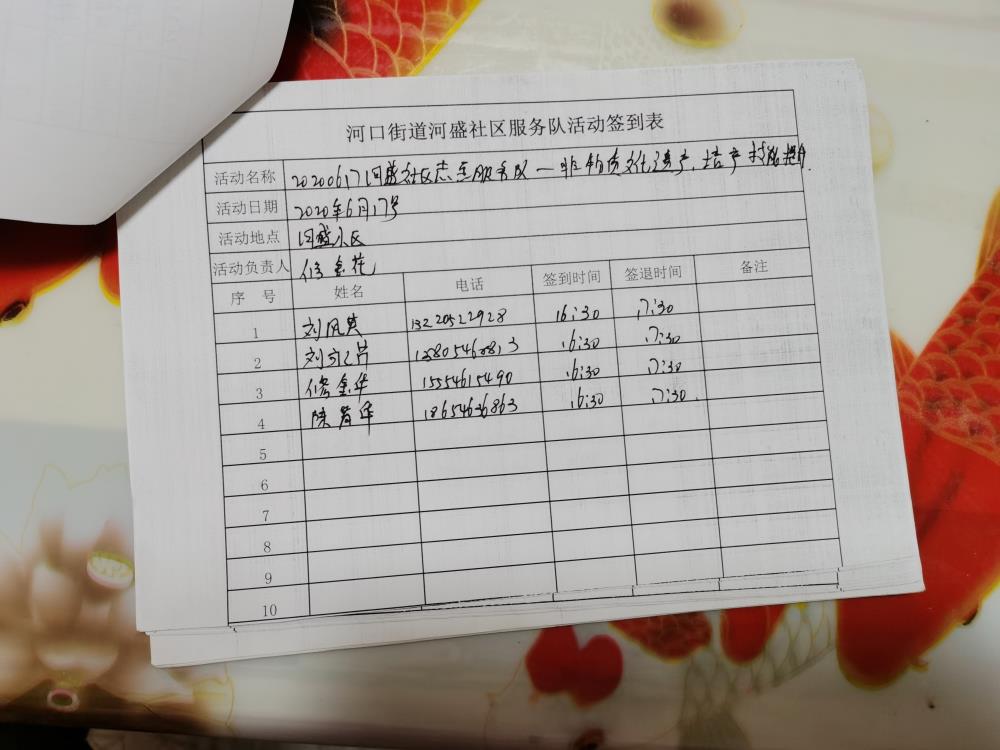 河口街道河盛社区服务队活动签到表
活动名称 20200617河盛社区志愿服务队—非物质文化遗产,培产技能提升.
活动日期 2020年6月17号
活动地点 河盛小区
活动负责人 修金花
序 号 姓名 电话 签到时间 签退时间 备注
1 刘凤英 13220522928 16:30 17:30
2 刘 16:30 17:30
3 修金华 15554615490 16:30 17:30
4 陈 18654636863 16:30 17:30.
5
6
7
8
9
10